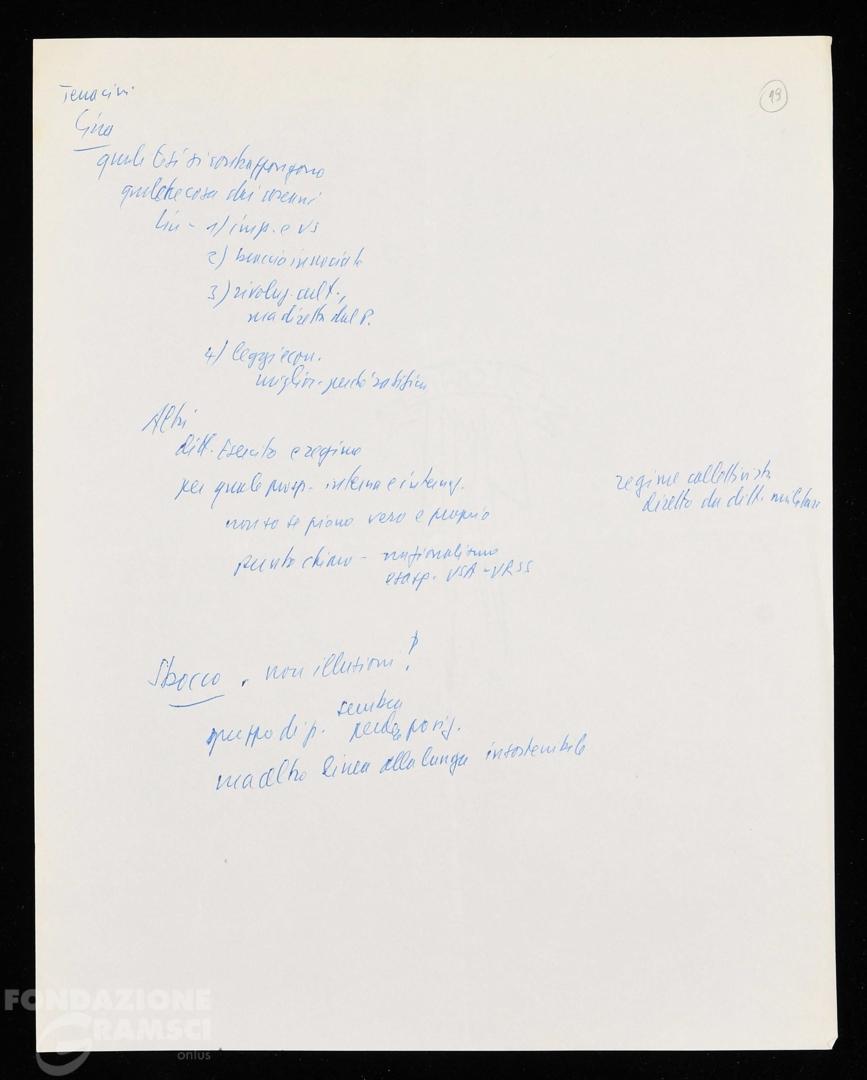 19
Terracini
Cina
quali tesi si contrappongono
qualche cosa dai
Liu - 1) imp. e US
2)
3) rivoluz. cult.,
ma diretta dal P.
4) leggi econ.
miglior.
Altri
ditt. Esercito e regime
per quale prosp. interna e internaz.
non so se piano vero e proprio
regime collettivista
diretto da ditt. militare
punto chiaro - nazionalismo
esasp. USA-URSS
Sbocco. non illusioni!
gruppo di p. sembra
perdere posiz.
ma altra linea alla lunga insostenibile
FONDAZIONE
GRAMSCI
onlus